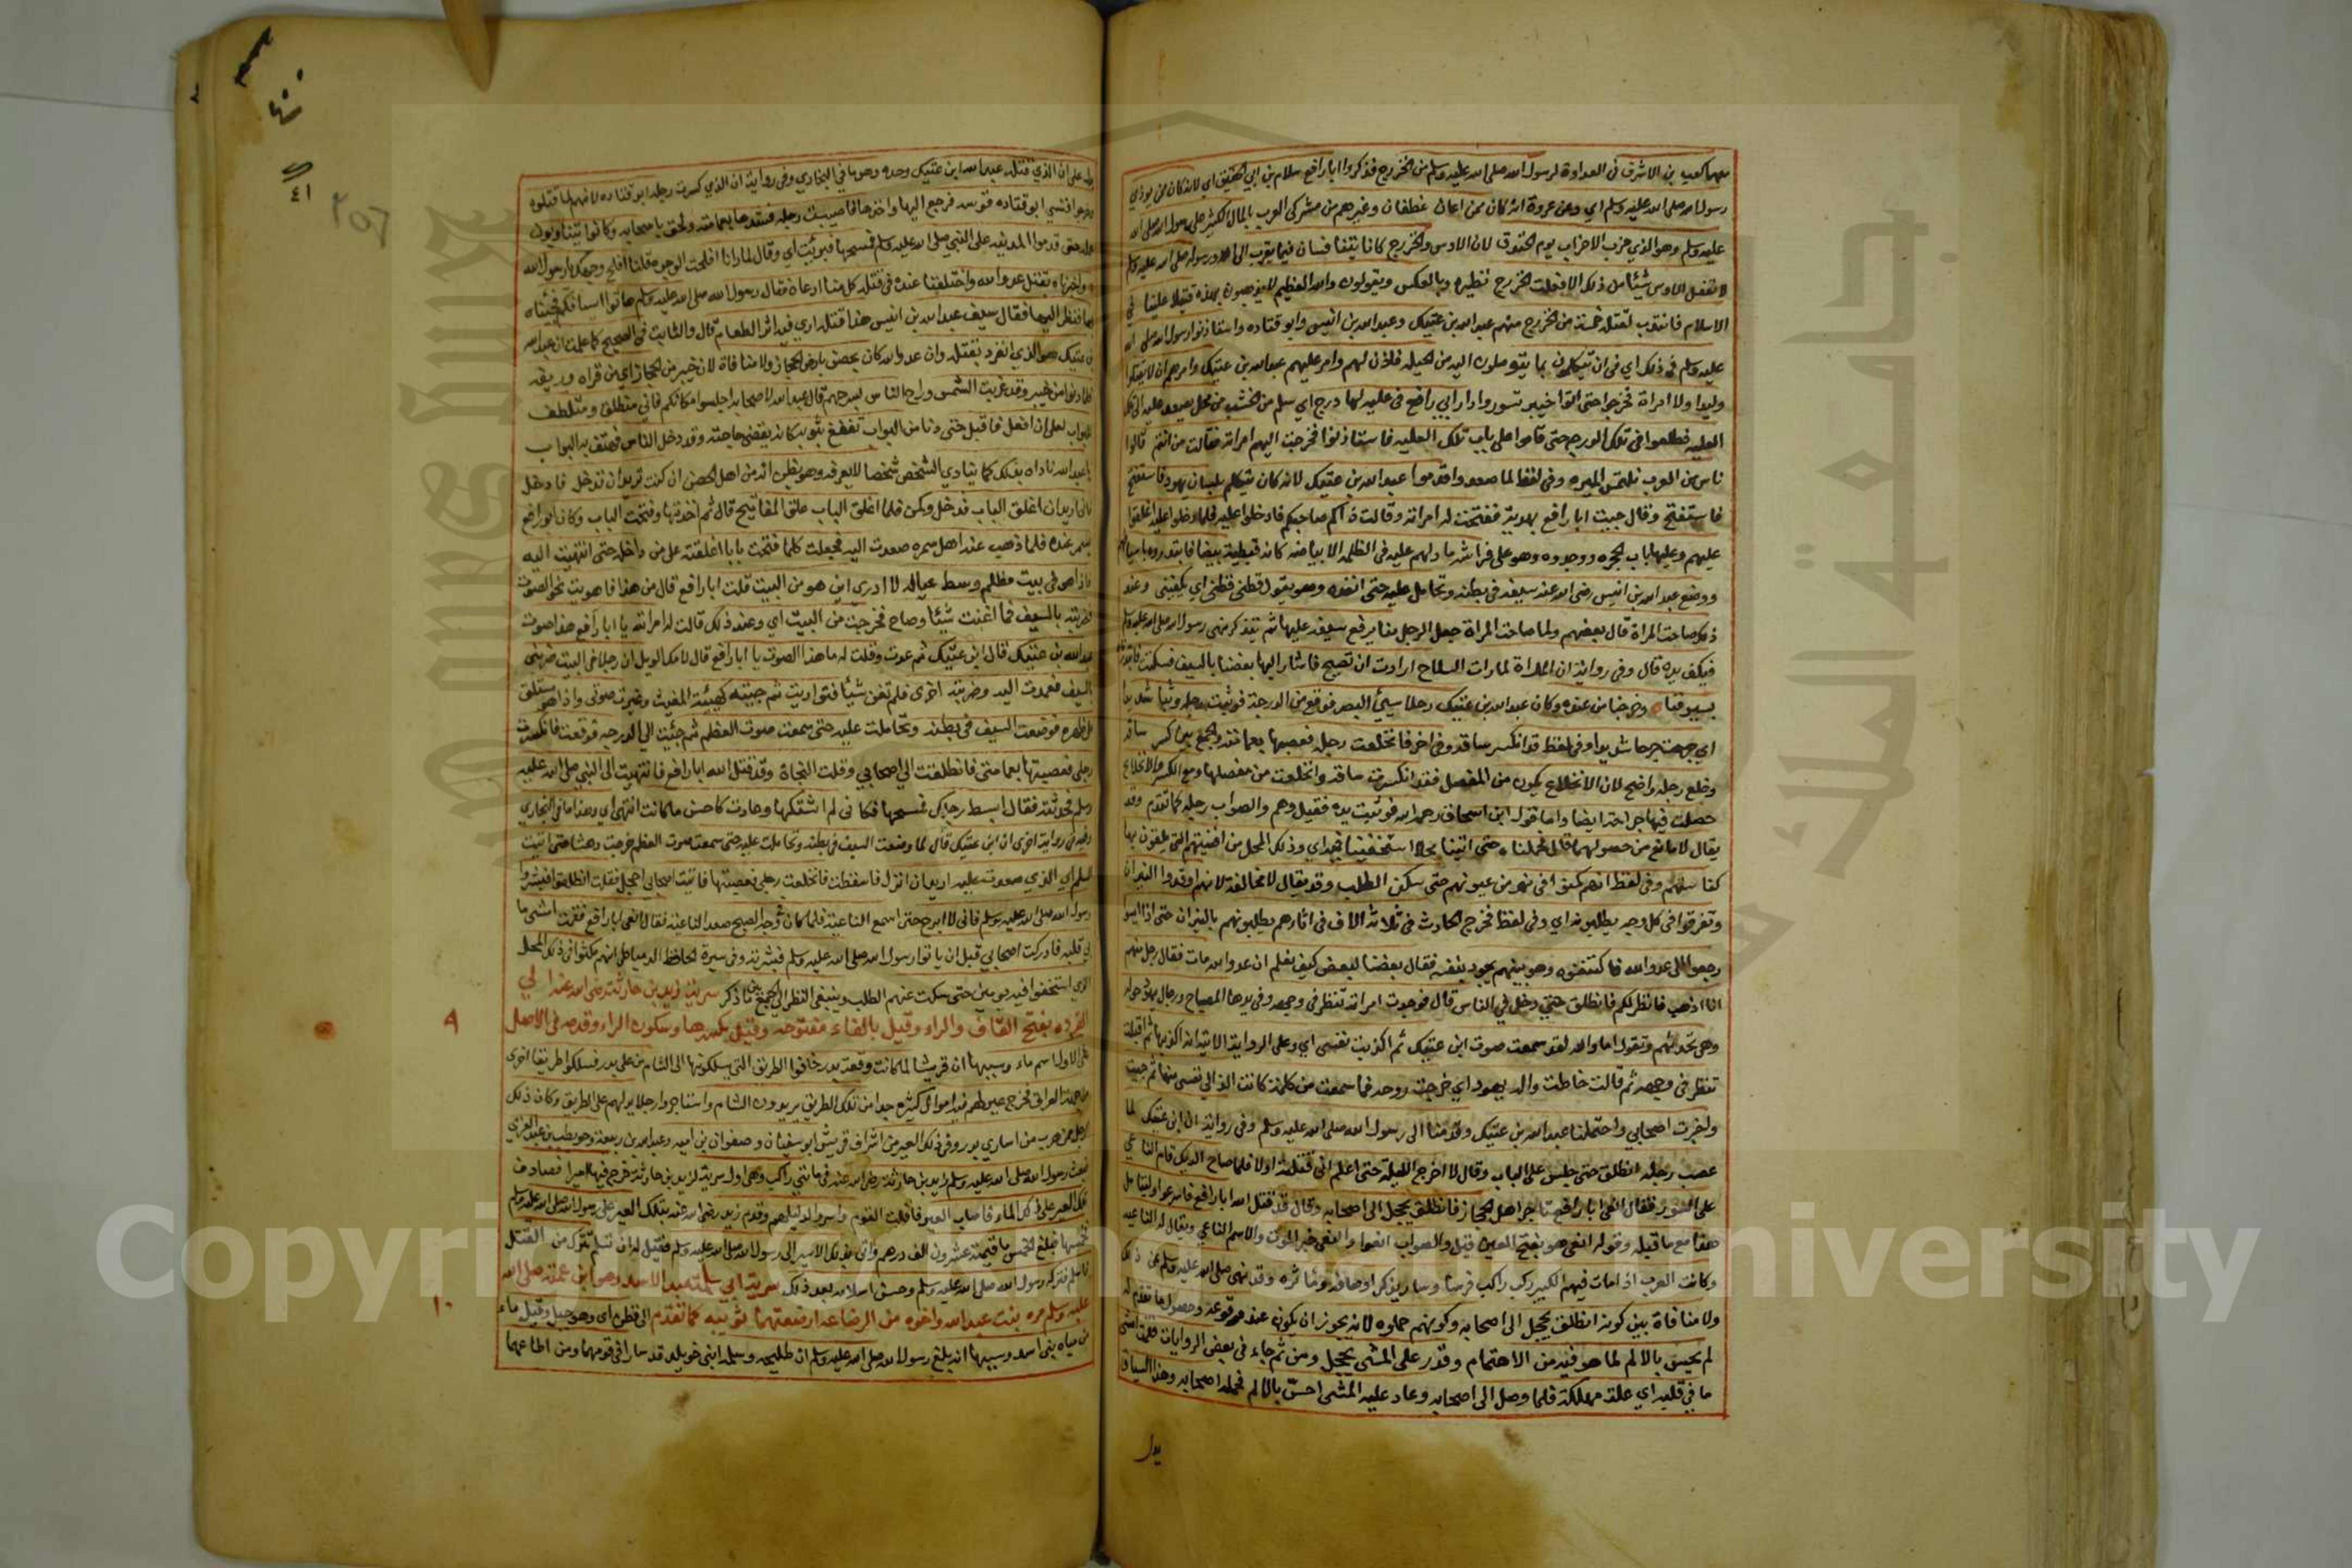 منهما كعب بن الاشرف في العداوة لرسول الله صلى الله عليه وسلم من الخزرج فذكروا ابا رافع سلام بن ابي الحقيق اي لانه كان ممن يوذي
رسول الله صلى الله عليه وسلم اي وعن عروة انه كان ممن اعان غطفان وغيرهم من مشركي العرب بالمال الكثير على رسول الله صلى الله
عليه وسلم وهو الذي حزب الاحزاب يوم الخندق لان الاوس والخزرج كانا يتنافسان فيما يقرب الى الله ورسوله صلى الله عليه وسلم
لا تفعل الاوس شيئا من ذلك الا فعلت الخزرج نظيره وبالعكس ويقولون والله العظيم لا يذهبون بهذه فضلا علينا في
الاسلام فانتدب لقتله خمسة من الخزرج منهم عبد الله بن عتيك وعبد الله بن انيس وابو قتاده واستاذنوا رسول الله صلى الله
عليه وسلم في ذلك اي في ان يتكلموا بما يتوصلون اليه من الحيلة فاذن لهم وامر عليهم عبد الله بن عتيك وامرهم ان لا يقتلوا
وليدا ولا امراة فخرجوا حتى اتوا خيبر تسوروا دار ابي رافع في علية لها درج اي سلم من الخشب من محل يصعد عليه الى تلك
العليه فطلعوا في تلك الدرج حتى قاموا على باب تلك العليه فاستاذنوا فخرجت اليهم امراته فقالت من انتم قالوا
ناس من العرب نلتمس الميره وفي لفظ لما صعدوا قدموا عبد الله بن عتيك لانه كان يتكلم بلسان يهود فاستفتح
فاستفتح وقال جيت ابا رافع بهدية ففتحت له امراته وقالت ذاكم صاحبكم فادخلوا عليه فلما دخلوا عليه اغلقوا
عليهم وعليها باب الحجره ووجدوه وهو على فراشه ما دلهم عليه في الظلمه الا بياضه كانه قبطية بيضا فابتدروه باسيافهم
ووضع عبد الله بن انيس رضي الله عنه سيفه في بطنه وتحامل عليه حتى انفذه وهو يقول قطني قطني اي يكفيني وعند
ذلك صاحت المراة قال بعضهم ولما صاحت المراة جعل الرجل منا يرفع سيفه عليها ثم يتذكر نهي رسول الله صلى الله عليه وسلم
فيكف يده قال وفي رواية ان المراة لما رات السلاح ارادت ان تصيح فاشار اليها بعضنا بالسيف فسكتت
بسيوفنا وخرجنا من عنده وكان عبد الله بن عتيك رجلا سيئ البصر فوقع من الدرجة فوثيت رجله وثيا شديدا
اي جرحت جرحا شديدا وفي لفظ قد انكسر ساقه وفي اخر فانخلعت رجله فعصبها بعمامته والجمع بين كسر ساقه
وخلع رجله واضح لان الانخلاع يكون من المفصل فقد انكسرت ساقه وانخلعت من مفصلها ومع الكسر والانخلاع
حصلت فيها جراحة ايضا واما قول ابن اسحاق رحمه الله فوثيت يده فقيل وهم والصواب رجله كما تقدم وقد
يقال لا مانع من حصولهما قال فحملناه حتى اتينا محلا استخفينا فيه اي وذلك المحل من افنيتهم التي يلقون بها
كناستهم وفي لفظ انهم كمنوا في نهر من عيونهم حتى سكن الطلب وقد يقال لا مخالفة لانهم اوقدوا النيران
وتفرقوا في كل وجه يطلبونه اي وفي لفظ فخرج الحارث في ثلاثة الاف في اثارهم يطلبونهم بالنيران حتى اذا ايسوا
رجعوا الى عدو الله فاكتنفوه وهو بينهم يجود بنفسه فقال بعضنا لبعض كيف نعلم ان عدو الله مات فقال رجل منهم
انا اذهب فانظر لكم فانطلق حتى دخل في الناس قال فوجدت امراته تنظر في وجهه وفي يدها المصباح ورجال يهود حوله
وهي تحدثهم وتقول اما والله لقد سمعت صوت ابن عتيك ثم اكذبت نفسي اي وعلى الرواية الاتية اكذبها ثم اقبلت
تنظر في وجهه ثم قالت فاظت واله يهود اي خرجت روحه فما سمعت من كلمة كانت الذ الى نفسي منها ثم جيت
واخبرت اصحابي واحتملنا عبد الله بن عتيك وقدمنا الى رسول الله صلى الله عليه وسلم وفي رواية ان ابن عتيك لما
عصب رجله انطلق حتى جلس على الباب وقال لا اخرج الليلة حتى اعلم اني قتلته اولا فلما صاح الديك قام الناعي
على السور فقال انعي ابا رافع تاجر اهل الحجاز فانطلق يحجل الى اصحابه وقال قد قتل الله ابا رافع فاسرعوا وليتامل
هذا مع ما قبله وقوله انعى هو بفتح العين قيل والصواب انعوا والنعي خبر الموت والاسم الناعي ويقال له الناعيه
وكانت العرب اذا مات فيهم الكبير ركب راكب فرسا وسار يذكر اوصافه وماثره وقد نهى صلى الله عليه وسلم عن ذلك
ولا منافاة بين كونه انطلق يحجل الى اصحابه وكونهم حملوه لانه يجوز ان يكون عند وقوعه وحصول ما تقدم له
لم يحس بالالم لما هو فيه من الاهتمام وقدر على المشي يحجل ومن ثم جاء في بعض الروايات فقمت امشي
ما بي قلبه اي علة مهلكة فلما وصل الى اصحابه وعاد عليه المشي احس بالالم فحمله اصحابه وهذا السياق
يدل
يدل على ان الذي قتله عبد الله ابن عتيك وحده وهو ما في البخاري وفي رواية ان الذي كسرت رجله ابو قتاده لانهم لما قتلوه
وخرجوا نسي ابو قتاده قوسه فرجع اليها واخذها فاصيبت رجله فشدها بعمامته ولحق باصحابه وكانوا يتناوبون
حمله حتى قدموا المدينه على النبي صلى الله عليه وسلم فمسحها فبرئت اي وقال لما رانا افلحت الوجوه قلنا افلح وجهك يا رسول الله
واخبرناه بقتل عدو الله واختلفنا عنده في قتله كل منا ادعاه فقال رسول الله صلى الله عليه وسلم هاتوا اسيافكم فجئناه
بها فنظر اليها فقال سيف عبد الله بن انيس هذا قتله ارى فيه اثر الطعام قال والثابت في الصحيح كما علمت ان عبد الله
بن عتيك هو الذي انفرد بقتله وان عدو الله كان بحصن بارض الحجاز ولا منافاة لان خيبر من الحجاز اي من قراه وريفه
فلما دنوا من خيبر وقد غربت الشمس وراح الناس بسرحهم قال عبد الله لاصحابه اجلسوا مكانكم فاني منطلق ومتلطف
للبواب لعلي ان ادخل فاقبل حتى دنا من الباب تقنع بثوبه كانه يقضي حاجته وقد دخل الناس فهتف به البواب
يا عبد الله ناداه بذلك كما ينادي الشخص شخصا لا يعرفه وهو يظن انه من اهل الحصن ان كنت تريد ان تدخل فادخل
فاني اريد ان اغلق الباب فدخل وكمن فلما اغلق الباب علق المفاتيح قال ثم اخذتها وفتحت الباب وكان ابو رافع
يسمر عنده فلما ذهب عنه اهل سمره صعدت اليه فجعلت كلما فتحت بابا اغلقته علي من داخله حتى انتهيت اليه
فاذا هو في بيت مظلم وسط عياله لا ادري اين هو من البيت قلت ابا رافع قال من هذا فاهويت نحو الصوت
فضربته بالسيف فما اغنت شيئا وصاح فخرجت من البيت اي وعند ذلك قالت له امراته يا ابا رافع هذا صوت
عبد الله بن عتيك قال ابن عتيك ثم عدت وقلت له ما هذا الصوت يا ابا رافع قال لامك الويل ان رجلا في البيت ضربني
بالسيف فعمدت اليه وضربته اخرى فلم تغن شيئا فتواريت ثم جيته كهيئة المغيث وغيرت صوتي واذا هو مستلق
على ظهره فوضعت السيف في بطنه وتحاملت عليه حتى سمعت صوت العظم ثم جئت الى الدرجه فوقعت فانكسرت
رجلي فعصبتها بعمامتي فانطلقت الى اصحابي وقلت النجاة وقد قتل الله ابا رافع فانتهيت الى النبي صلى الله عليه
وسلم فحدثته فقال ابسط رجلك فمسحها فكاني لم اشتكها وعادت كاحسن ما كانت انتهى اي وهذا ما في البخاري
وفيه في رواية اخرى ان ابن عتيك قال لما وضعت السيف في بطنه وتحاملت عليه حتى سمعت صوت العظم خرجت دهشا حتى اتيت
السلم اي الذي صعدت عليه اريد ان انزل فاسقطت فانخلعت رجلي فعصبتها فاتيت اصحابي احجل فقلت انطلقوا فبشروا
رسول الله صلى الله عليه وسلم فاني لا ابرح حتى اسمع الناعية فلما كان وجه الصبح صعد الناعية فقال انعي ابا رافع فقمت امشي ما
بي قلبه فادركت اصحابي قبل ان ياتوا رسول الله صلى الله عليه وسلم فبشرته وفي سيرة الحافظ الدمياطي انهم مكثوا في ذلك المحل
الذي استخفوا فيه يومين حتى سكت عنهم الطلب وينبغي النظر الى الجمع بين ما ذكر سرية زيد بن حارثة رضي الله عنه الى
القرده بفتح القاف والراء وقيل بالفاء مفتوحه وقيل بكسرها وسكون الراء وقدمه في الاصل
على الاول اسم ماء وسببها ان قريشا لما كانت وقعة بدر خافوا الطريق التي يسلكونها الى الشام من على بدر فسلكوا طريقا اخرى
من جهة العراق فخرج عير لهم فيه اموال كثيره جدا من تلك الطريق يريدون الشام واستاجروا رجلا يدلهم على الطريق وكان ذلك
الرجل ممن هرب من اسارى بدر وفي ذلك العير من اشراف قريش ابو سفيان وصفوان بن اميه وعبد الله بن ربيعة وحويطب بن عبد العزى
فبعث رسول الله صلى الله عليه وسلم زيد بن حارثة رضي الله عنه في مائتي راكب وهي اول سرية لزيد بن حارثه خرج فيها اميرا فصادف
تلك العير على ذلك الماء فاصاب العير وافلت القوم واسروا دليلهم وقدم زيد رضي الله عنه بتلك العير على رسول الله صلى الله عليه وسلم
فخمسها فبلغ الخمس ما قيمته عشرون الف درهم واتى بذلك الاسير الى رسول الله صلى الله عليه وسلم فقيل له ان تسلم تترك من القتل
فاسلم فتركه رسول الله صلى الله عليه وسلم وحسن اسلامه بعد ذلك سرية ابي سلمة عبد الاسد وهو ابن عمته صلى الله
عليه وسلم بره بنت عبد المطلب واخوه من الرضاعة ارضعتهما ثويبه كما تقدم الى قطن اي وهو جبل وقيل ماء
من مياه بني اسد وسببها انه بلغ رسول الله صلى الله عليه وسلم ان طليحه وسلمه ابني خويلد قد سارا في قومهما ومن اطاعهما
٩
١٠
٤٠
٤١
٢٥٦
Copyright © King Saud University
جامعة الملك سعود